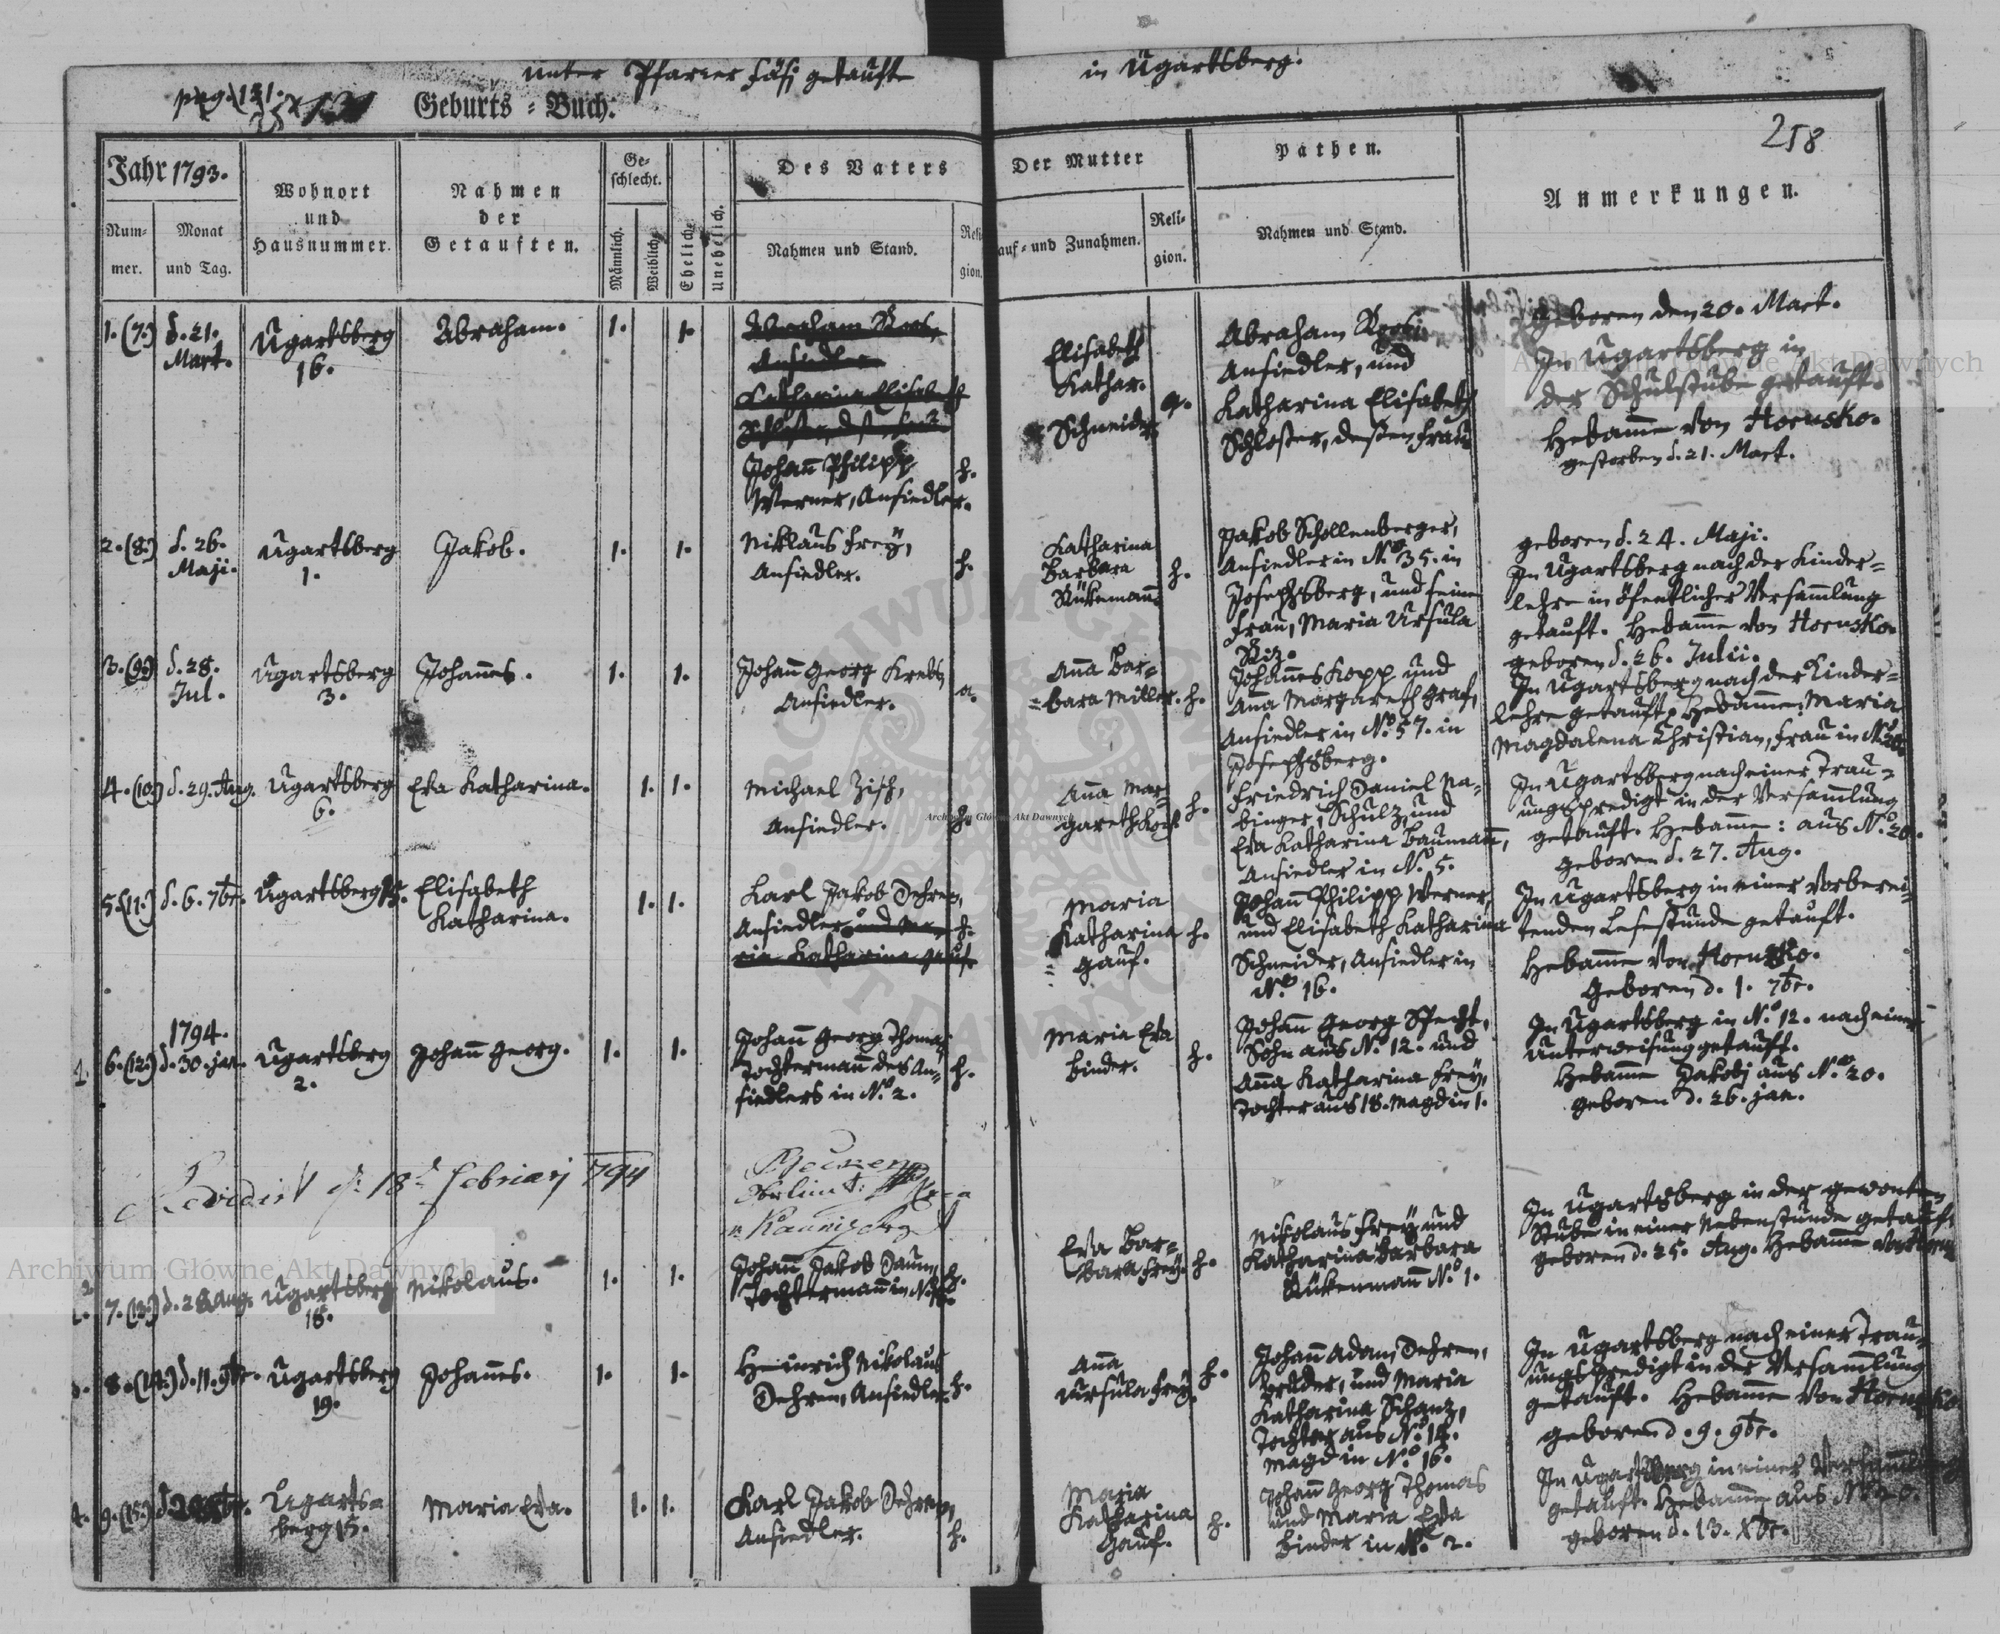 unter Pfarrer Fäsi getauft
in Ugartsberg.
pag. 131.
Geburts-Buch.
258
Jahr 1793.
Num-
mer.
Monat
und Tag.
Wohnort
und
Hausnummer.
Nahmen
der
Getauften.
Ge-
schlecht.
Männlich.
Weiblich.
Ehelich.
Unehelich.
Des Vaters
Nahmen und Stand.
Reli-
gion.
Der Mutter
auf- und Zunahmen.
Reli-
gion.
Pathen.
Nahmen und Stand.
Anmerkungen.
1. (7.)
d. 21.
Mart.
Ugartsberg
16.
Abraham.
1.
1.
Abraham
Ansiedler
Katharina Elisabeth
Johann Philipp
Werner, Ansiedler.
h.
Elisabeth
Kathar.
Schneider
Abraham
Ansiedler, und
Katharina Elisabeth
Schloßer, deßen Frau
Geboren den 20. Mart.
In Ugartsberg in
der Schulstube getauft.
Hebamme von Horusko.
gestorben d. 21. Mart.
2. (8.)
d. 26.
Maji.
Ugartsberg
1.
Jakob.
1.
1.
Niklaus Frey,
Ansiedler.
h.
Katharina
Barbara
Rükemann
h.
Jakob Schollenberger,
Ansiedler in No. 35. in
Josephsberg, und seine
Frau, Maria Ursula
geboren d. 24. Maji.
In Ugartsberg nach der Kinder=
lehre in öfentlicher Versammlung
getauft. Hebamme von Horusko.
3. (9.)
d. 28.
Jul.
Ugartsberg
3.
Johannes.
1.
1.
Johann Georg Krebs
Ansiedler.
a.
Anna Bar=
=bara Miller.
h.
Johannes Kopp und
Anna Margareth Graf,
Ansiedler in No. 57. in
Josephsberg.
geboren d. 26. Julii.
In Ugartsberg nach der Kinder=
lehre getauft. Hebamme: Maria
Magdalena Christian, Frau in No. 20.
4. (10.)
d. 29. Aug.
Ugartsberg
6.
Eva Katharina.
1.
1.
Michael Zisch,
Ansiedler.
h.
Anna Mar
gareth Koch
h.
Friedrich Daniel Na=
binger, Schulz, und
Eva Katharina Baumann,
Ansiedler in No. 5.
In Ugartsberg nach einer Trau=
ungspredigt in der Versammlung
getauft. Hebamme: aus No. 20.
geboren d. 27. Aug.
5. (11.)
d. 6. 7br.
Ugartsberg 15.
Elisabeth
Katharina.
1.
1.
Karl Jakob Dehren,
Ansiedler und Ma=
ria Katharina Gauf.
h.
Maria
Katharina
Gauf.
h.
Johann Philipp Werner,
und Elisabeth Katharina
Schneider, Ansiedler in
No. 16.
In Ugartsberg in einer vorberei=
tenden Lesestunde getauft.
Hebamme von Horusko.
Geboren d. 1. 7br.
1794.
6. (12.)
d. 30. jan.
Ugartsberg
2.
Johann Georg.
1.
1.
Johann Georg Thomas
Tochtermann des An=
siedlers in No. 2.
h.
Maria Eva
Binder.
h.
Johann Georg Specht,
Sohn aus No. 12. und
Anna Katharina Frey,
Tochter aus 18. Magd in 1.
In Ugartsberg in No. 12. nach einer
Unterweisung getauft.
Hebamme Jakobj aus No. 20.
geboren d. 26. jan.
Revidirt d. 18t Februarj 794
7. (13.)
d. 28 Aug.
Ugartsberg
18.
Nikolaus.
1.
1.
Johann Jakob Daum,
Tochtermann in No. 18.
h.
Eva Bar=
bara Frey.
h.
Nikolaus Frey und
Katharina Barbara
Rükenmann No. 1.
In Ugartsberg in der gewonten
Stube in einer Nebenstunde getauft,
geboren d. 25. Aug. Hebamme von
8. (14.)
d. 11. 9br.
Ugartsberg
19.
Johannes.
1.
1.
Heinrich Nikolaus
Dehren, Ansiedler.
h.
Anna
Ursula Frey.
h.
Johann Adam Dehren,
Bruder, und Maria
Katharina Schanz,
Tochter aus No. 14.
Magd in No. 16.
In Ugartsberg nach einer Trau=
ungspredigt in der Versammlung
getauft. Hebamme von Horusko
geboren d. 9. 9br.
9. (15.)
Ugarts=
berg 15.
Maria Eva.
1.
1.
Karl Jakob Dehren,
Ansiedler.
h.
Maria
Katharina
Gauf.
h.
Johann Georg Thomas
und Maria Eva
Binder in No. 2.
In Ugartsberg in einer Versammlung
getauft. Hebamme aus No. 20.
geboren d. 13. Xbr.
Archiwum Główne Akt Dawnych
Archiwum Główne Akt Dawnych
Archiwum Główne Akt Dawnych